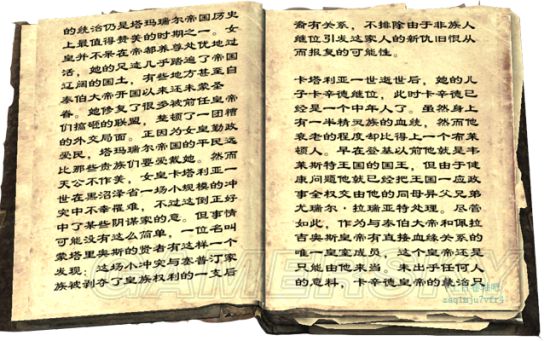 的统治仍是塔玛瑞尔帝国历史
上最值得赞美的时期之一。女
皇并不呆在帝都养尊处优地过
活，她的足迹几乎踏遍了帝国
辽阔的国土，有些地方甚至自
泰伯大帝开国以来还未蒙圣
眷。她修复了很多被前任皇帝
们搞砸的联盟，整顿了一团糟
的外交局面。正因为女皇勤政
爱民，塔玛瑞尔帝国的平民远
比那些贵族们要爱戴她。然而
天公不作美，女皇卡塔利亚一
世在黑沼泽省一场小规模的冲
突中不幸罹难，不过这倒正好
中了某些阴谋家的意。但事情
可能没有这么简单，一位名叫
蒙塔里奥斯的贤者有过这样一个
发现，这场小冲突与塞普汀家
族被剥夺了皇族权利的一支后
裔有关系，不排除由于非族人
继位引发这家人的新仇旧恨从
而报复的可能性。
卡塔利亚一世逝世后，她的儿
子卡辛德继位，此时卡辛德已
经是一个中年人了。虽然身上
有一半精灵族的血统，然而他
衰老的程度却比得上一个布莱
顿人。早在登基以前他就是韦
莱斯特王国的国王，但由于健
康问题他就已经把王国一应政
事全权交由他的同母异父兄弟
尤瑞尔·拉瑞亚特处理。尽管
如此，作为与泰伯大帝和佩拉
吉奥斯皇帝有直接血缘关系的
唯一皇室成员，这个皇帝还是
只能由他来当。未出乎任何人
的意料，卡辛德皇帝的统治只
GAMERSKY